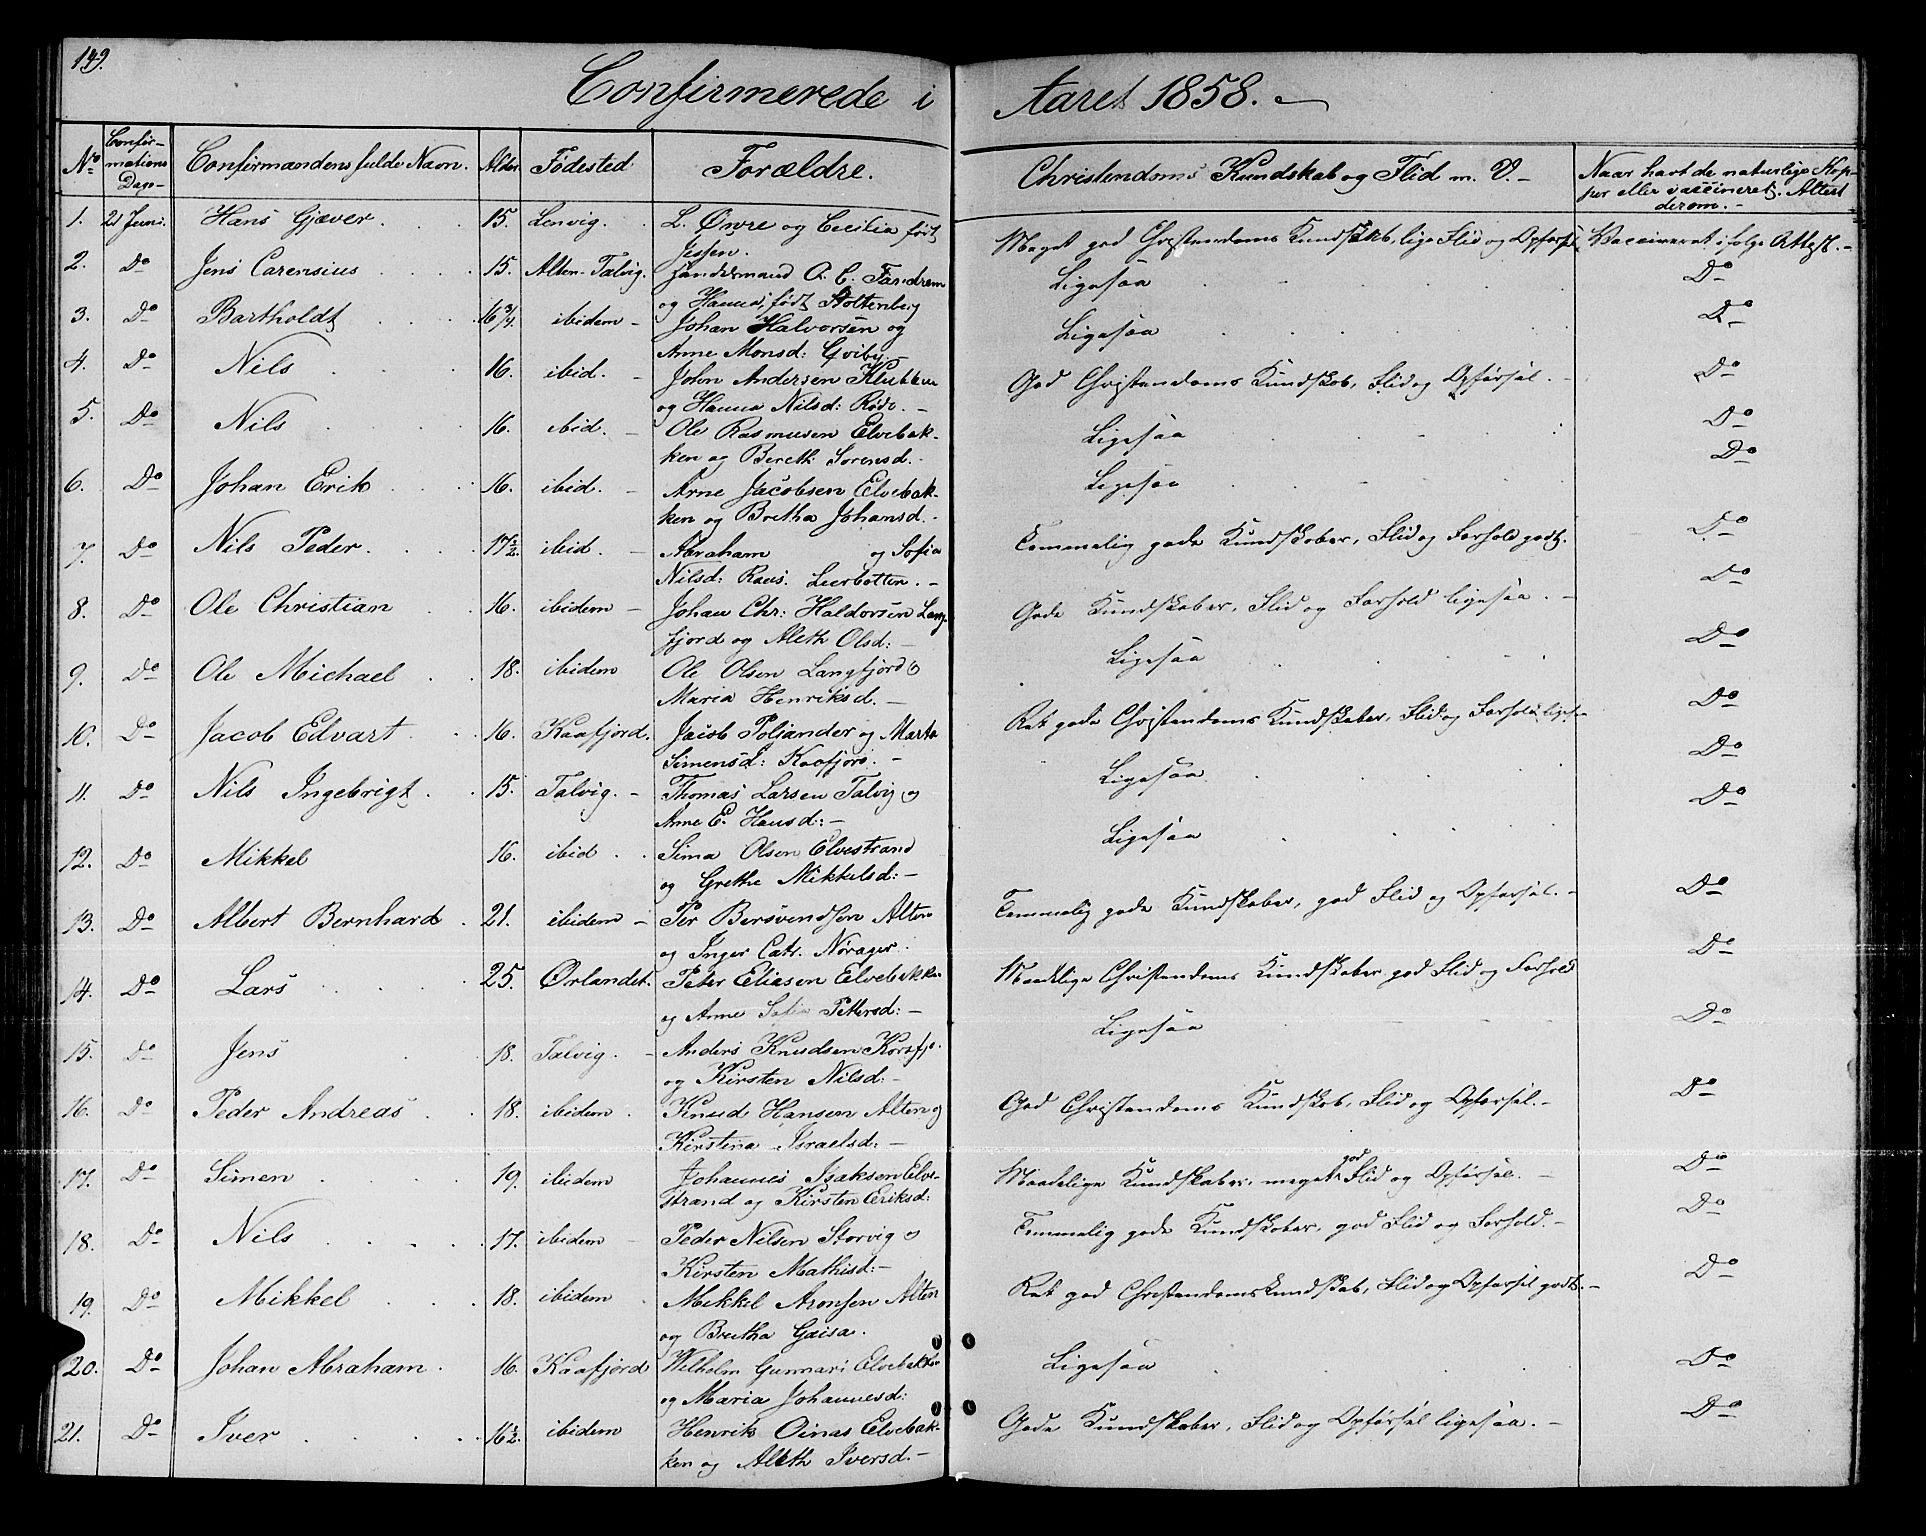 149.
Confirmerede i Aaret 1858.
No Confirmations Dage Confirmandens fulde Navn. Alder Fødested Forældre. Christendoms Kundskab og Flid m. V. Naar havt de naturlige Kopper eller vaccineret. Attest derom.
1. 21 Juni. Hans Gjæver 15. Lenvig. L. Øwre og Cecilia født Meget god Christendoms Kundskab, lige Flid og Opførsel Vaccineret ifølge Attest.
Jessen.
2. Do Jens Carensius 15. Alten-Talvig. Handelsmand O. C. Fandrem Ligesaa Do
og Hanna, født Stoltenberg
3. Do Bartholdt 16 3/4 ibidem Johan Halvorsen og Ligesaa Do
Anne Monsd: Qviby.
4. Do Nils 16. ibid. John Andersen Klubben God Christendoms Kundskab, Flid og Opførsel. Do
og Hanna Nilsd: Rødø.
5. Do Nils 16. ibid. Ole Rasmusen Elvebak- Ligesaa Do
ken og Bereth Sorensd.
6. Do Johan Erik 16. ibid. Arne Jacobsen Elvebak- Ligesaa Do
ken og Bretha Johansd.
7. Do Nils Peder. 17 1/2. ibid. Abraham og Sofia Temmelig gode Kundskaber, Flid og Forhold godt. Do
Nilsd: Leerbotten.
8. Do Ole Christian 16. ibidem Johan Chr: Haldorsen Lang- Gode Kundskaber, Flid og Forhold ligesaa. Do
fjord og Aleth Olsd:
9. Do Ole Michael 18. ibidem Ole Olsen Langfjord og Ligesaa Do
Maria Henriksd.
10. Do Jacob Edvart 16. Kaafjord. Jacob Poljander og Marta Ret gode Christendoms Kundskaber, Flid og Forhold ligesaa Do
Simensd: Kaafjord.
11. Do Nils Ingebrigt 15. Talvig. Thomas Larsen Talvig og Ligesaa Do
Anne E. Hansd:
12. Do Mikkel 16. ibid. Sima Olsen Elvestrand Ligesaa Do
og Grethe Mikkelsd:
13. Do Albert Bernhard 21. ibidem Per Bersvendsen Alten Temmelig gode Kundskaber, god Flid og Opførsel. Do
og Inger Catr. Nørager.
14. Do Lars 25. Ørlandet. Peter Eliasen Elvebakken Maadelige Christendoms Kundskaber god Flid og Forhold Do
og Anne Sofia Pettersd:
15. Do Jens 18. Talvig. Anders Knudsen Korsfj. Ligesaa Do
og Kirsten Nilsd:
16. Do Peder Andreas 18. ibidem Knud Hansen Alten og God Christendoms Kundskab, Flid og Opførsel. Do
Kirstina Israelsd:
17. Do Simen 19. ibidem Johannes Isaksen Elve- Maadelige Kundskaber, meget god Flid og Opførsel. Do
strand og Kirsten Eriksd:
18. Do Nils 17. ibidem Peder Nilsen Storvig og Temmelig gode Kundskaber, god Flid og Forhold. Do
Kirsten Mathisd:
19. Do Mikkel 18. ibidem Mikkel Aronsen Alten Ret god Christendomskundskab, Flid og Opførsel godt. Do
og Bretha Gaisa.
20. Do Johan Abraham. 16. Kaafjord Wilhelm Gunnari Elvebakken Ligesaa Do
og Maria Johannesd:
21. Do Iver 16 1/2. ibidem Henrik Oinas Elvebak- Gode Kundskaber, Flid og Opførsel ligesaa. Do
ken og Aleth Iversd.